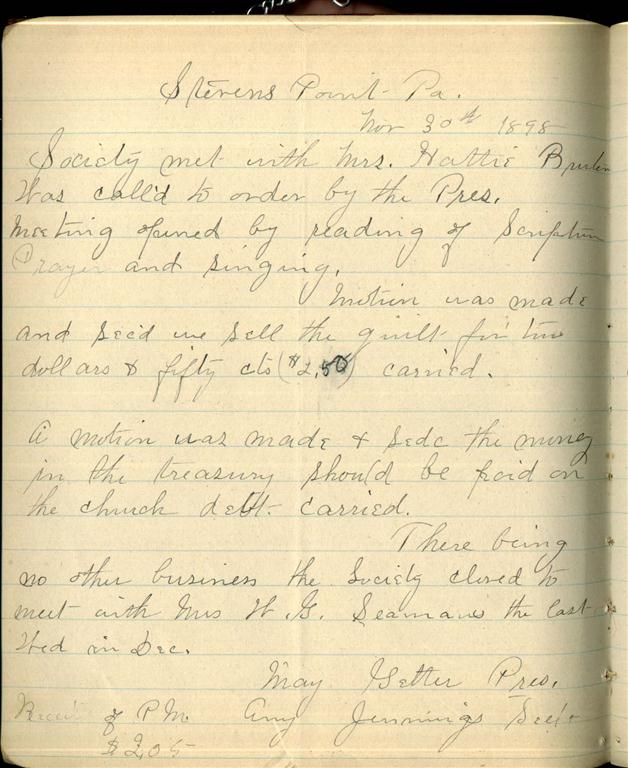 Stevens Point Pa.
Nov 30th 1898
Society met with Mrs. Hattie
Was call'd to order by the Pres.
Meeting opened by reading of Scripture
Prayer and singing.
Motion was made
and sec'd we sell the quilt for two
dollars & fifty cts ($2,50) carried.
A motion was made & Sedc the money
in the treasury should be paid on
the church debt. carried.
There being
no other business the Society closed to
meet with Mrs W. G. Seamans the last
Wed in Dec.
May Getter Pres.
of P.M. Amy Jennings Sec.
$2.05